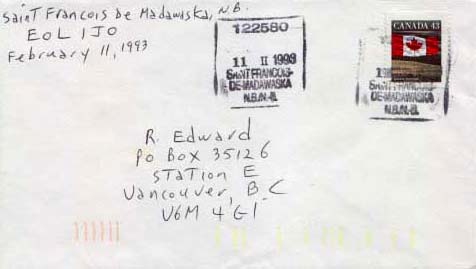 Saint Francois de Madawaska, N.B.
E0L 1J0
February 11, 1993
122580
11 II 1993
SAINT FRANCOIS-
DE-MADAWASKA
N.B./N.-B.
CANADA 43
SAINT FRANCOIS-
DE-MADAWASKA
N.B./N.-B.
R. Edward
PO Box 35126
Station E
Vancouver, B.C
V6M 4G1